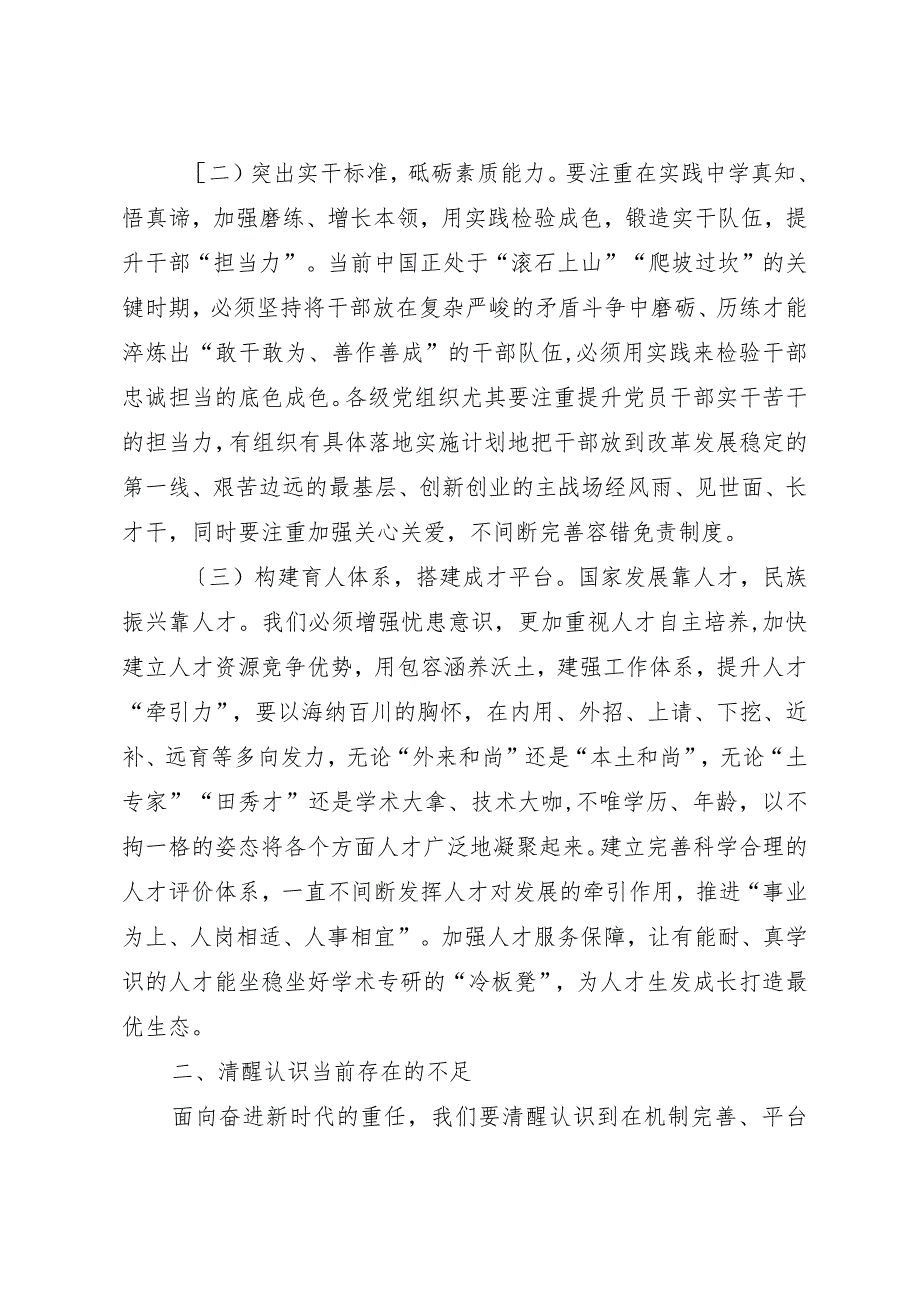 [二）突出实干标准，砥砺素质能力。要注重在实践中学真知、
悟真谛，加强磨练、增长本领，用实践检验成色，锻造实干队伍，提
升干部“担当力”。当前中国正处于“滚石上山”“爬坡过坎”的关
键时期，必须坚持将干部放在复杂严峻的矛盾斗争中磨砺、历练才能
淬炼出“敢干敢为、善作善成”的干部队伍,必须用实践来检验干部
忠诚担当的底色成色。各级党组织尤其要注重提升党员干部实干苦干
的担当力，有组织有具体落地实施计划地把干部放到改革发展稳定的
第一线、艰苦边远的最基层、创新创业的主战场经风雨、见世面、长
才干，同时要注重加强关心关爱，不间断完善容错免责制度。
〔三）构建育人体系，搭建成才平台。国家发展靠人才，民族
振兴靠人才。我们必须增强忧患意识，更加重视人才自主培养,加快
建立人才资源竞争优势，用包容涵养沃土，建强工作体系，提升人才
“牵引力”，要以海纳百川的胸怀，在内用、外招、上请、下挖、近
补、远育等多向发力，无论“外来和尚”还是“本土和尚”，无论“土
专家”“田秀才”还是学术大拿、技术大咖,不唯学历、年龄，以不
拘一格的姿态将各个方面人才广泛地凝聚起来。建立完善科学合理的
人才评价体系，一直不间断发挥人才对发展的牵引作用，推进“事业
为上、人岗相适、人事相宜”。加强人才服务保障，让有能耐、真学
识的人才能坐稳坐好学术专研的“冷板凳”，为人才生发成长打造最
优生态。
二、清醒认识当前存在的不足
面向奋进新时代的重任，我们要清醒认识到在机制完善、平台